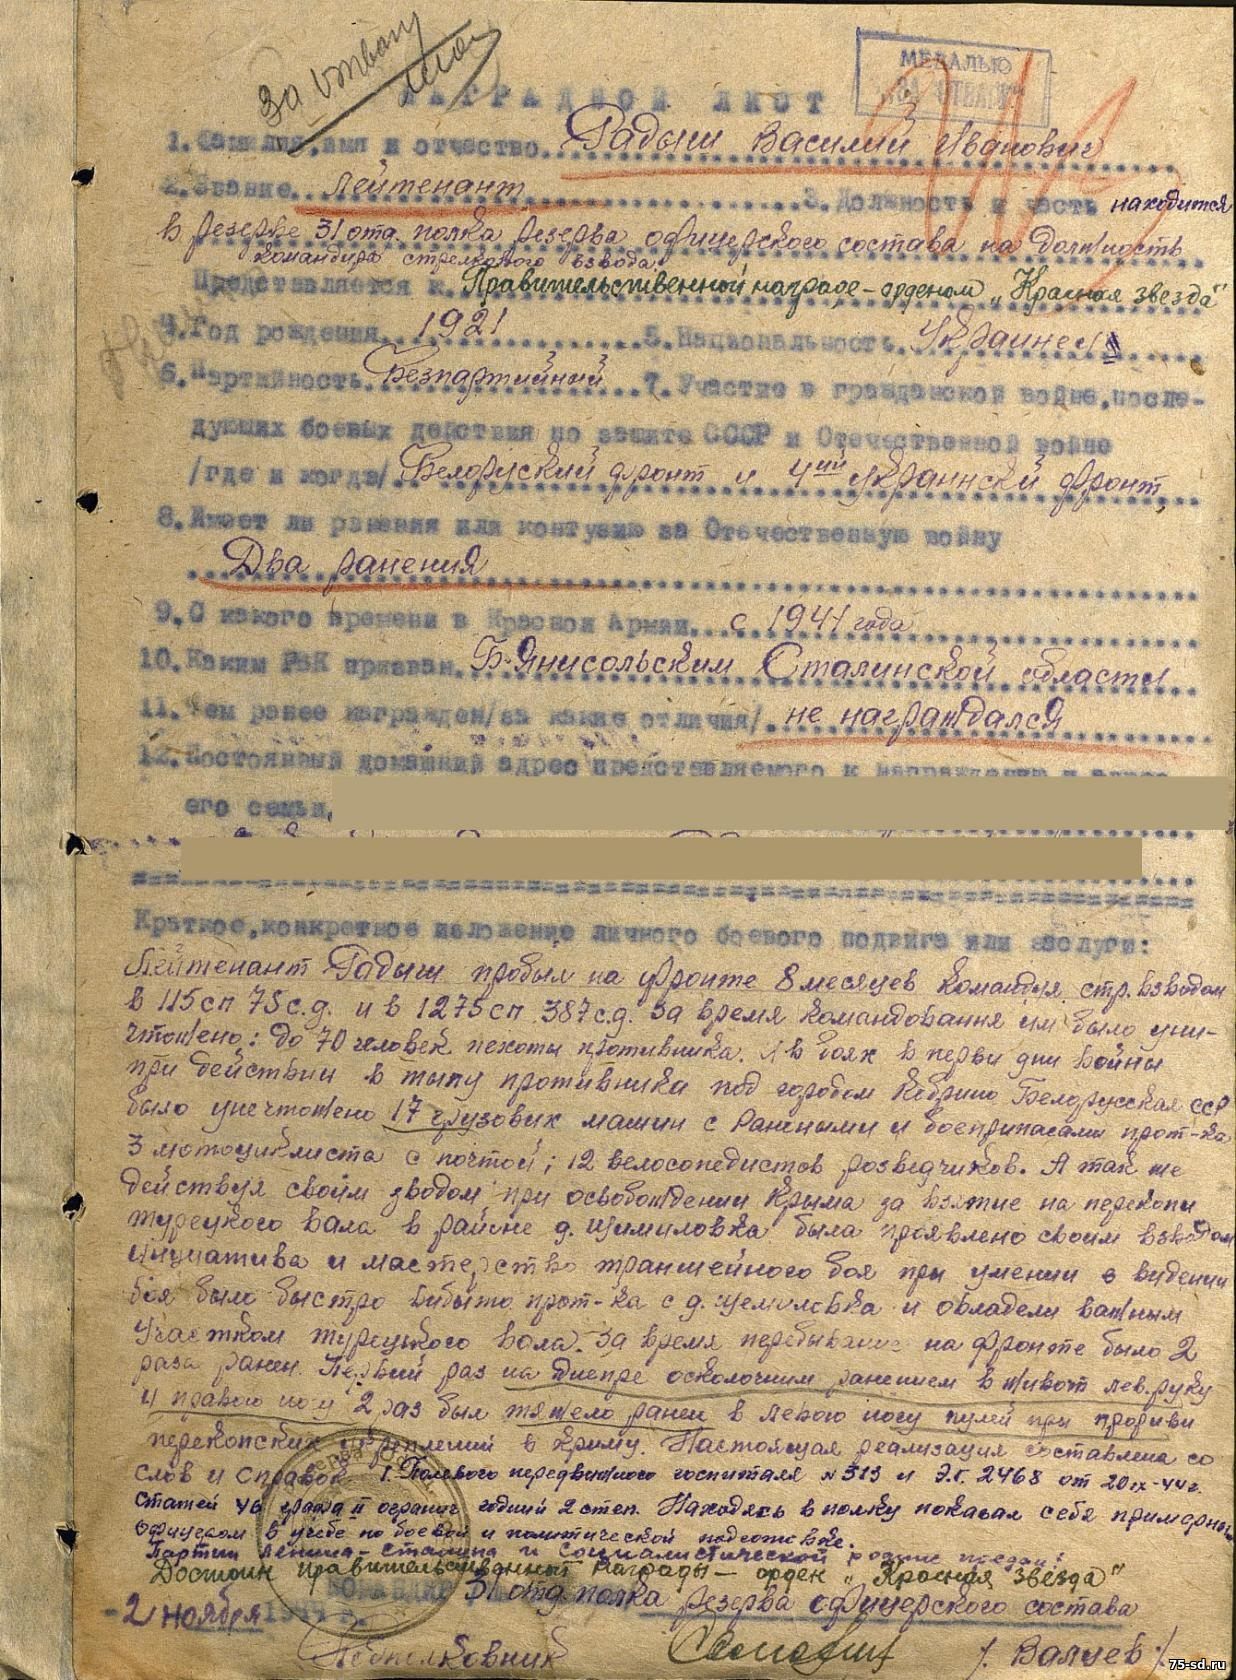 За отвагу
МЕДАЛЬЮ
"ЗА ОТВАГУ"
НАГРАДНОЙ ЛИСТ
1. Фамилия, имя и отчество Радыш Василий Иванович
2. Звание лейтенант 3. Должность и часть находится
в резерве 31 отд. полка резерва офицерского состава на должность
командира стрелкового взвода.
Представляется к Правительственной награде - орденом „Красная звезда"
4. Год рождения 1921 5. Национальность Украинец
6. Партийность Безпартийный 7. Участие в гражданской войне, после-
дующих боевых действия по защите СССР и Отечественной войне
/где и когда/ Белоруский фронт и 4ый украинский фронт
8. Имеет ли ранения или контузию за Отечественную войну
Два ранения
9. С какого времени в Красной Армии с 1941 года
10. Каким РВК призван Б-Янисольским Сталинской области
11. Чем ранее награжден/за какие отличия/ не награждался
12. Постоянный домашний адрес представляемого к награждению и адрес
его семьи
Краткое, конкретное изложение личного боевого подвига или заслуги:
Лейтенант Радыш пробыл на фронте 8 месяцев командуя стр. взводом
в 115 сп 75 с.д. и в 1275 сп 387 с.д. за время командования им было уни-
чтожено: до 70 человек пехоты противника. А в боях в первы дни войны
при действии в тылу противника под городом Кобрино Белорусская ССР
было уничтожено 17 грузовик машин с ранеными и боеприпасами прот-ка
3 мотоциклиста с почтой; 12 велосопедистов розведчиков. А так же
действуя своим зводом при освобождении Крыма за взятие на перекопи
турецкого вала в районе д. Цимиловка была проявлено своим взводом
инциатива и мастерство траншейного боя при умении в видении
боя было быстро выбыто прот-ка с д. Цемиловка и овладели важным
участком турецького вола. За время перебывание на фронте было 2
раза ранен. Первый раз на Днепре осколочним ранением в живот лев. руку
и правою ногу 2 раз был тяжело ранен в левою ногу пулей при прориви
перекопских укреплений в Криму. Настоящая реализация составлена со
слов и справок 1. Полевого передвижного госпиталя № 313 и Э.Г. 2468 от 20 IX-44 г.
статей 46 графа II огранич. годний 2 степ. Находясь в полку показал себя примерным
офицером в учебе по боевой и политической подготовке.
Партии Ленина - Сталина и социалистической родине предан!
Достоин правительственный награды - орден „Красная звезда"
КОМАНДИР 31 отд. полка резерва офицерского состава
2 ноября 1944 г.
Подполковник / Валуев /
75-sd.ru